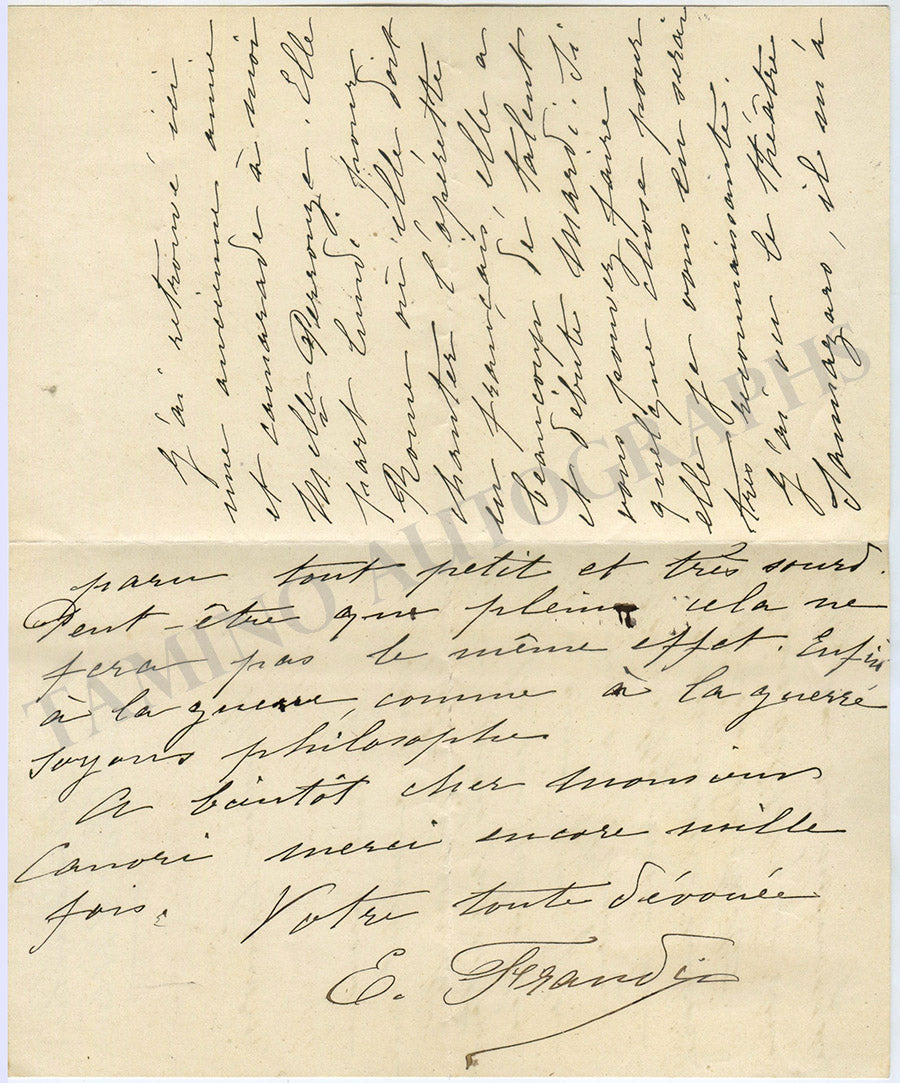 J'ai retrouvé ici
une ancienne amie
et camarade à moi
Melle Perrouze. Elle
part lundi pour
Rome où elle doit
chanter l'opérette
en français, elle a
beaucoup de talent
et débute Mardi. Si
vous pouvez faire
quelque chose pour
elle je vous en serai
très reconnaissante.
J'ai vu le théâtre
il m'a
paru tout petit et très sourd.
Peut-être que plein cela ne
fera pas le même effet. Enfin
à la guerre comme à la guerre
soyons philosophe
A bientôt cher monsieur
Canori merci encore mille
fois. Votre toute dévouée
E. Frandin
TAMINO AUTOGRAPHS